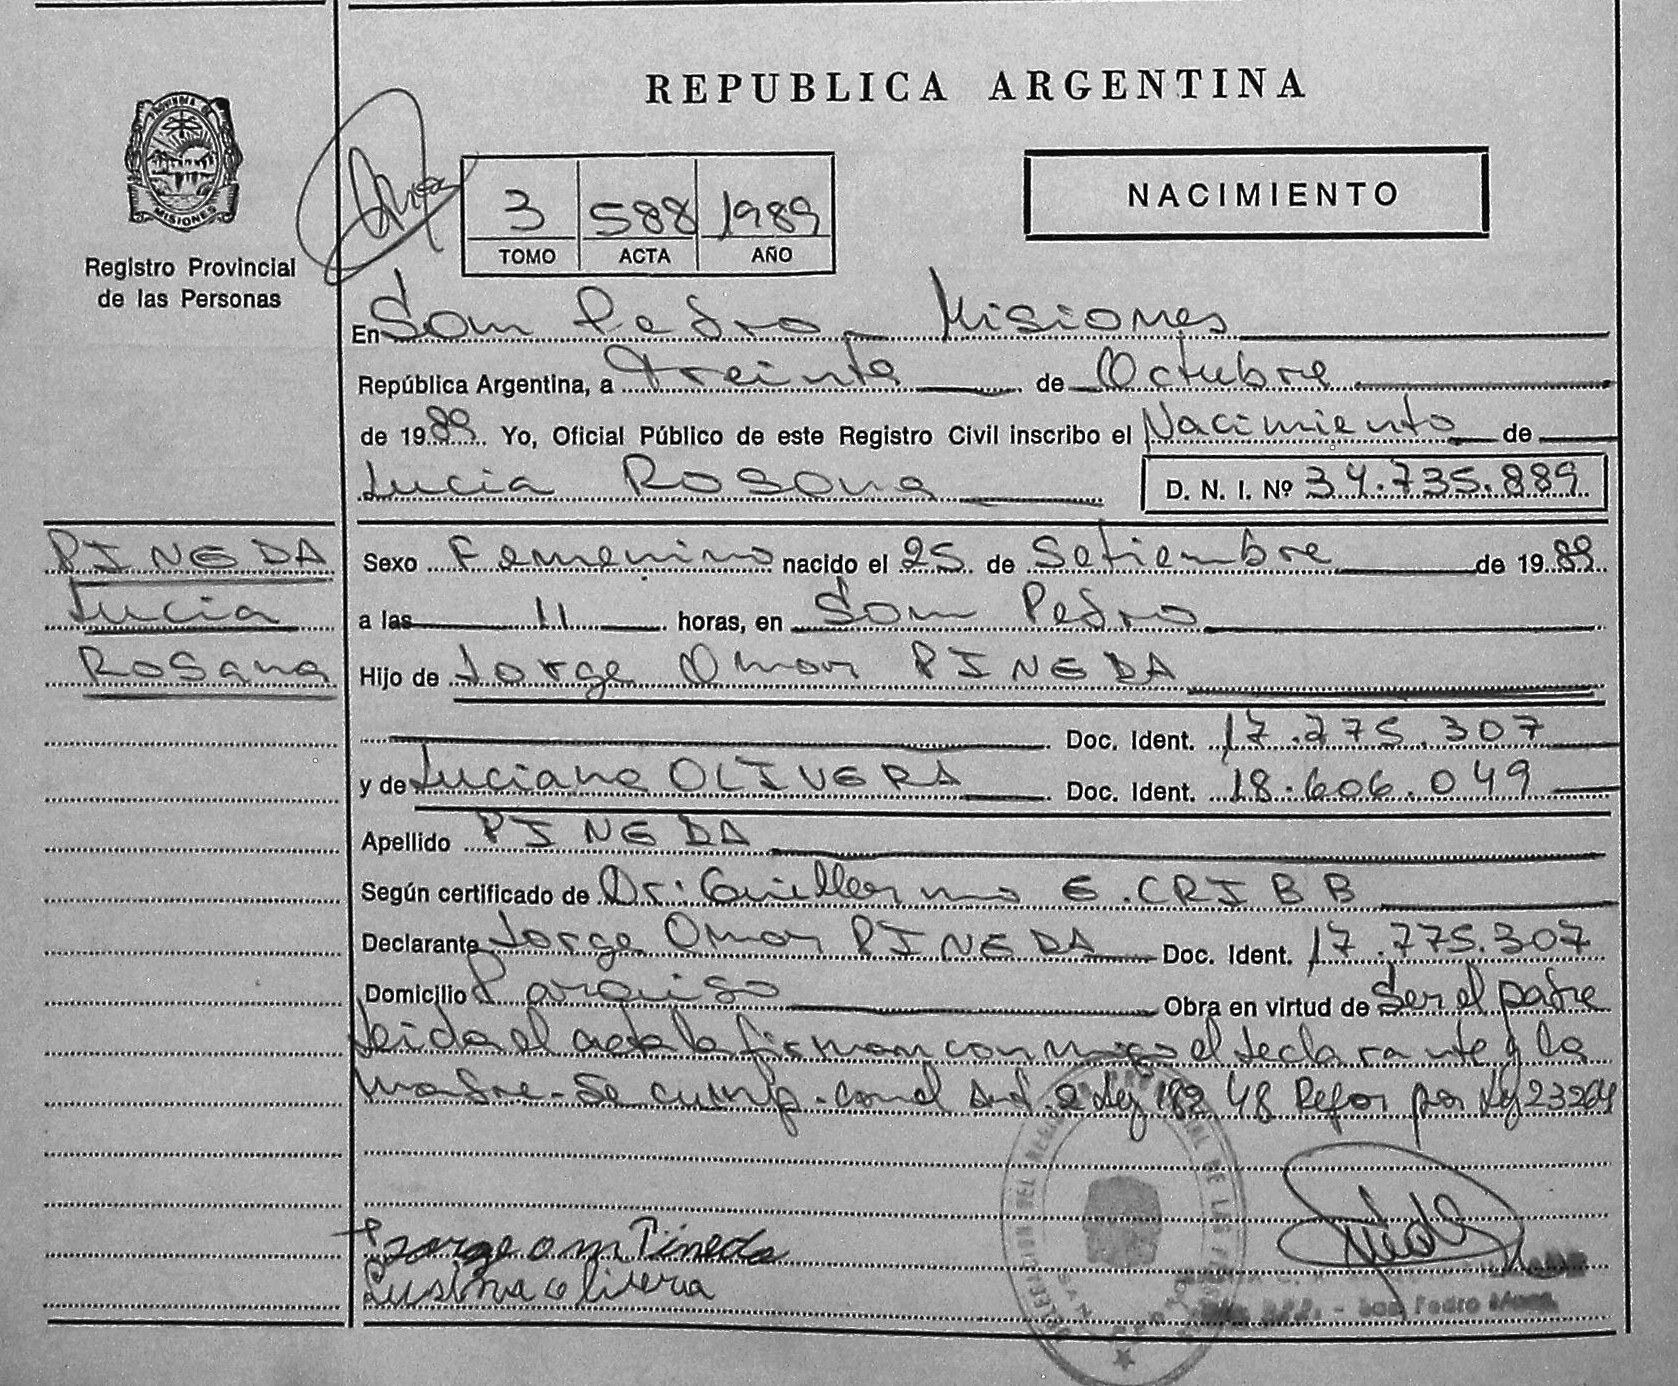 REPUBLICA ARGENTINA
PROVINCIA DE
MISIONES
Registro Provincial
de las Personas
3 588 1989
TOMO ACTA AÑO
NACIMIENTO
En San Pedro - Misiones
República Argentina, a Treinta de Octubre
de 1989. Yo, Oficial Público de este Registro Civil inscribo el Nacimiento de
Lucia Rosana D. N. I. Nº 34.735.889
PINEDA
Lucia
Rosana
Sexo Femenino nacido el 25 de Setiembre de 1989
a las 11 horas, en San Pedro
Hijo de Jorge Omar PINEDA
Doc. Ident. 17.775.307
y de Luciana OLIVERA Doc. Ident. 18.606.049
Apellido PINEDA
Según certificado de Dr: Guillermo E. CRIBB
Declarante Jorge Omar PINEDA Doc. Ident. 17.775.307
Domicilio Paraiso Obra en virtud de Ser el padre
Leida el acta la firman conmigo el declarante y la
madre - Se cump. con el Art. 2 Ley 182 48 Refor por Ley 23264
Jorge om Pineda
Lusina olivera
SAN PEDRO
San Pedro